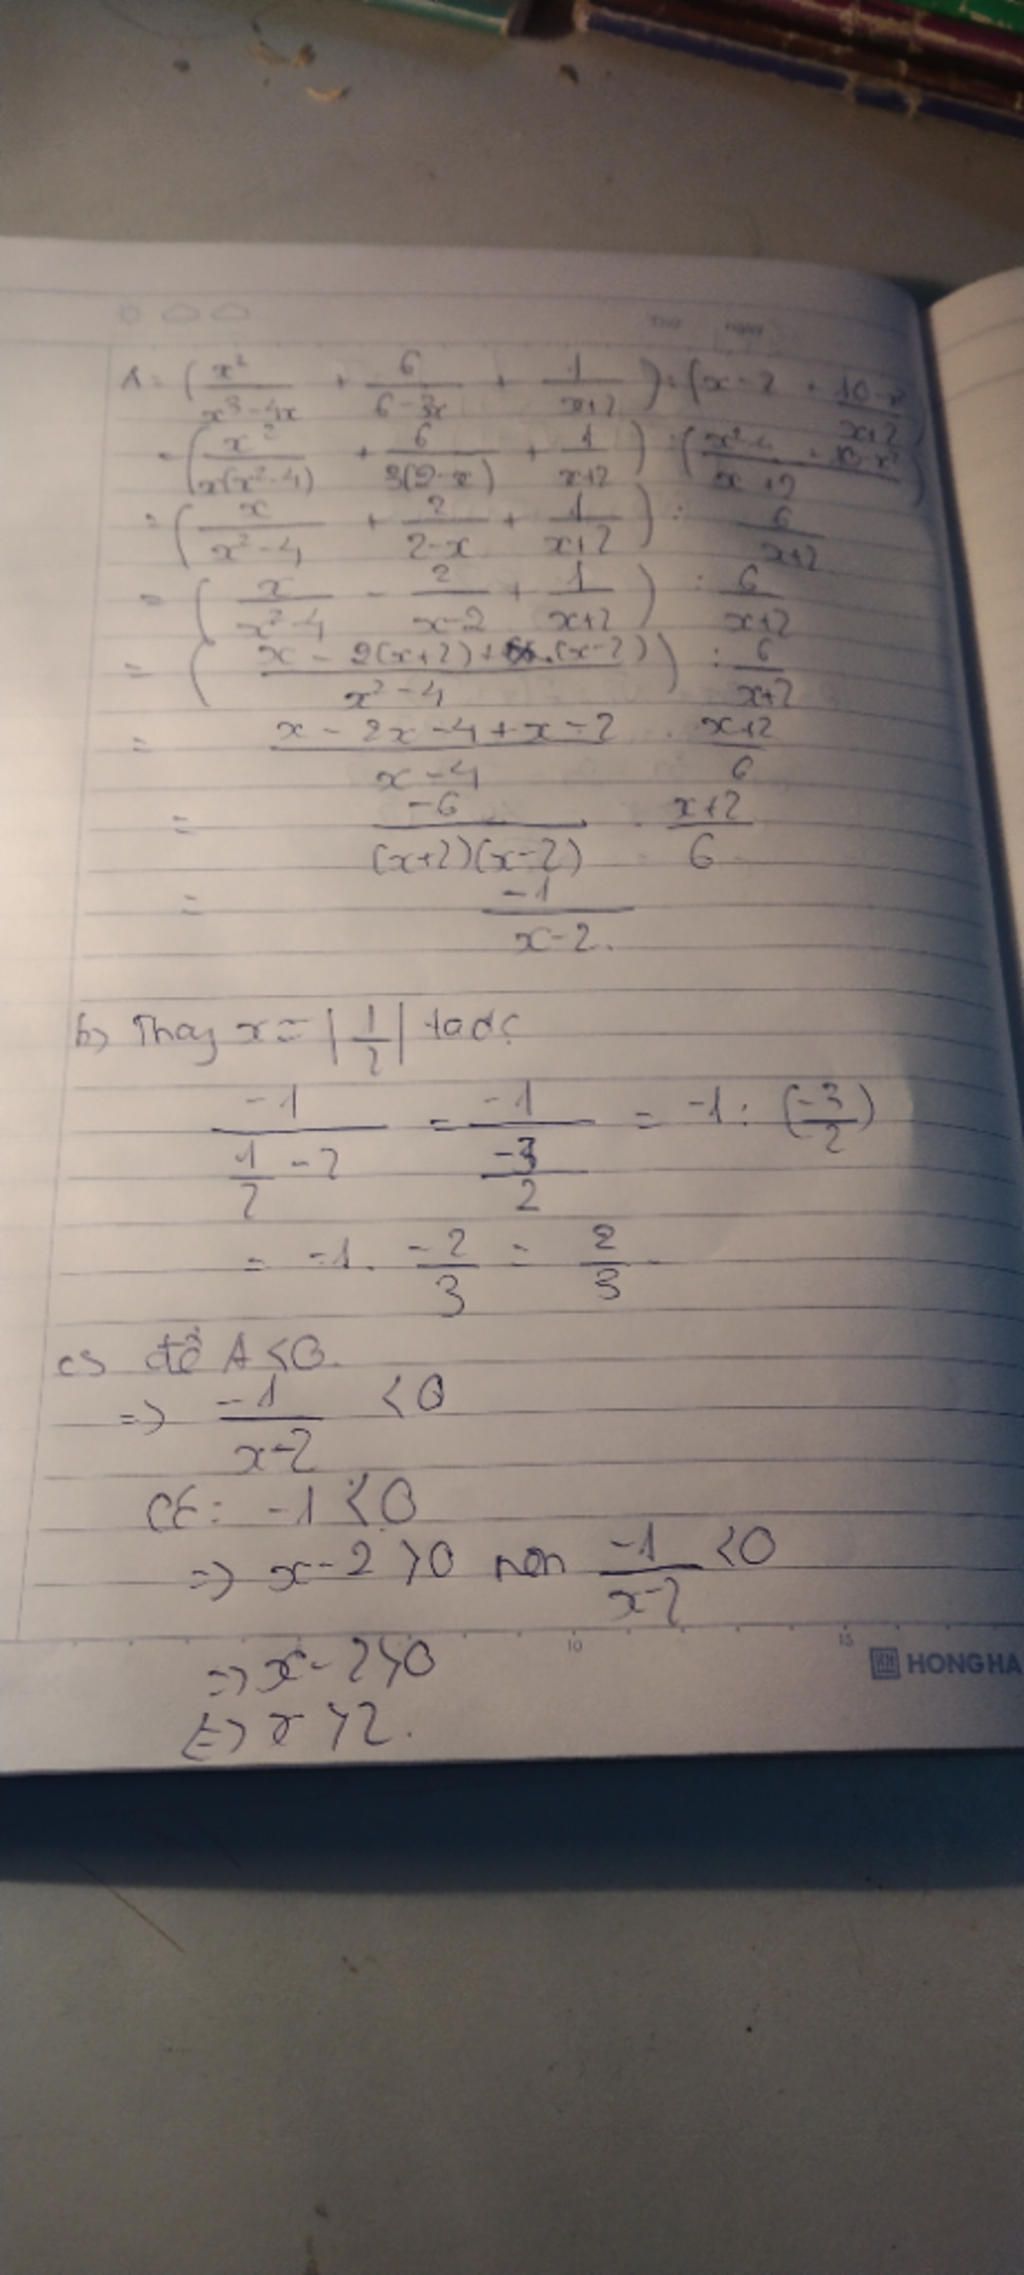 A = (x²/(x³-4x) + 6/(6-3x) + 1/(x+2)) : (x-2 + (10-x²)/(x+2))
= (x²/(x(x²-4)) + 6/(3(2-x)) + 1/(x+2)) : ((x²-4+10-x²)/(x+2))
= (x/(x²-4) + 2/(2-x) + 1/(x+2)) : 6/(x+2)
= (x/(x²-4) - 2/(x-2) + 1/(x+2)) : 6/(x+2)
= ((x-2(x+2)+(x-2))/(x²-4)) : 6/(x+2)
= (x-2x-4+x-2)/(x-4) . (x+2)/6
= -6/((x+2)(x-2)) . (x+2)/6
= -1/(x-2).
b) Thay x = |1/2| ta đc
-1/(1/2-2) = -1/(-3/2) = -1 : (-3/2)
= -1 . -2/3 = 2/3
c) để A<0.
=> -1/(x-2) < 0
-1 < 0
=> x-2 > 0 nên -1/(x-2) < 0
10 15
HONG HA
=> x-2>0
<=> x>2.